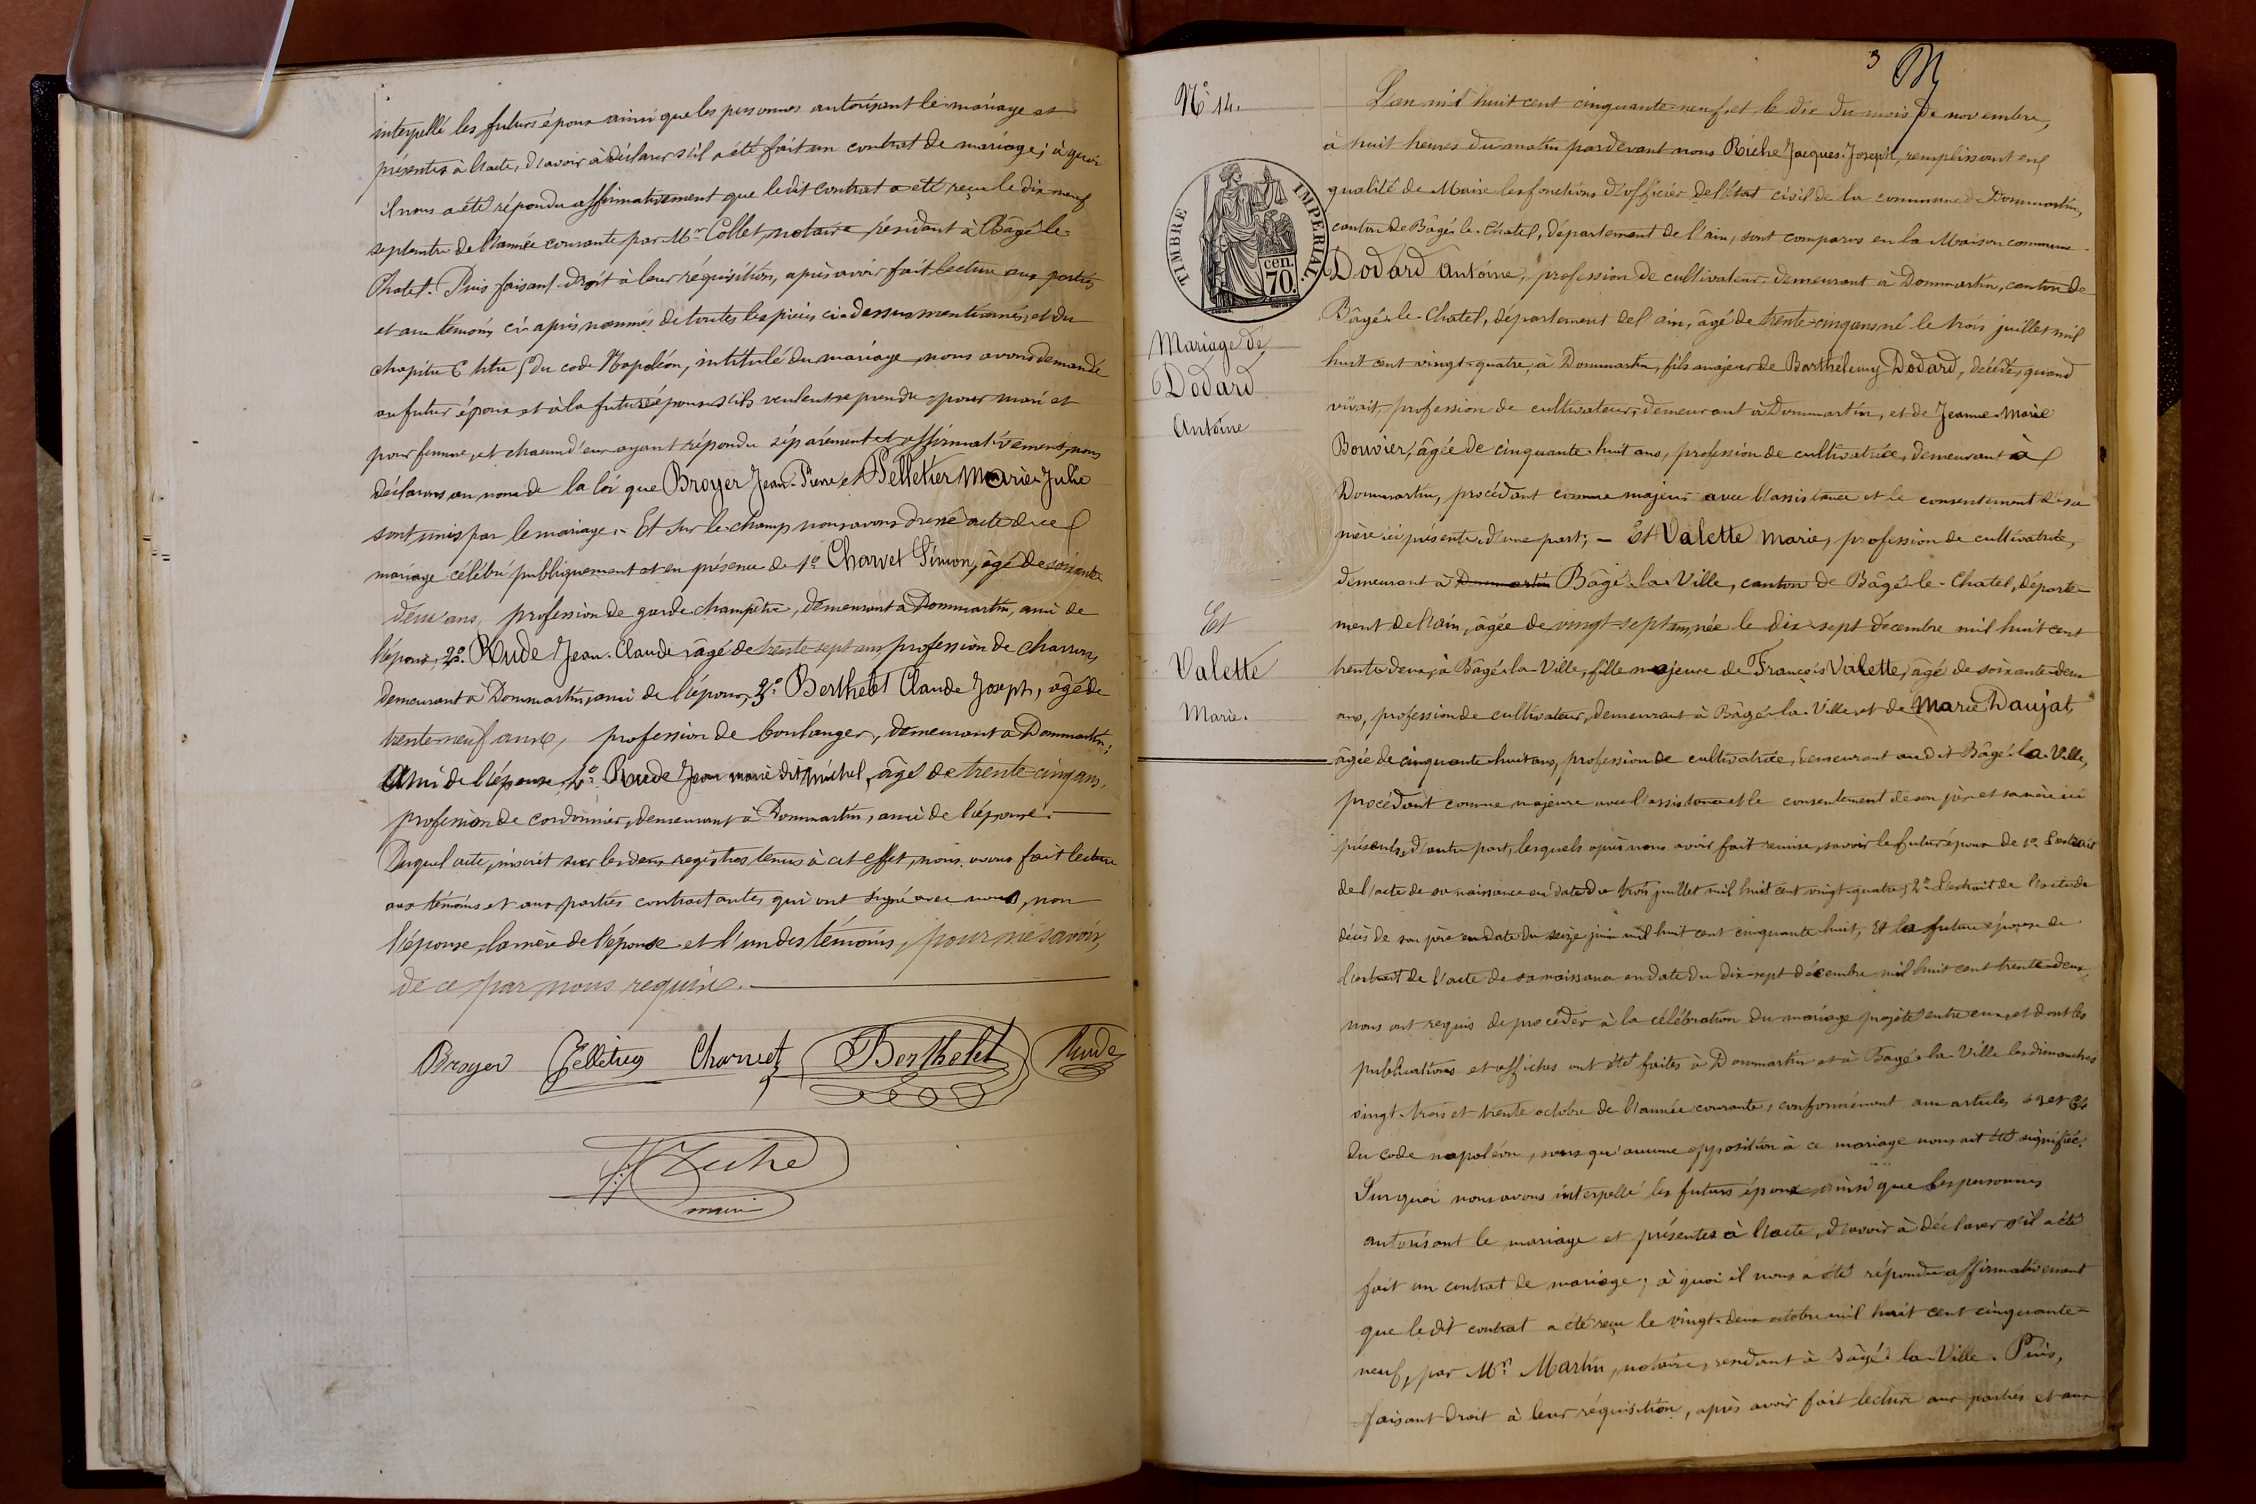 interpellé les futurs époux ainsi que les personnes autorisant le mariage et
présentes à l'acte, d'avoir à déclarer s'il a été fait un contrat de mariage; à quoi
il nous a été répondu affirmativement que le dit contrat a été reçu le dix neuf
septembre de l'année courante par Mr. Collet, notaire résidant à Bâgé-le-
Chatel. Puis faisant droit à leur réquisition, après avoir fait lecture aux parties
et aux témoins ci-après nommés de toutes les pièces ci-dessus mentionnées, et du
chapitre 6 titre 5 du code Napoléon, intitulé du mariage, nous avons demandé
au futur époux et à la future épouse s'ils veulent se prendre pour mari et
pour femme, et chacun d'eux ayant répondu séparément et affirmativement, nous
déclarons au nom de la loi que Broyer Jean-Pierre et Pelletier Marie Julie
sont unis par le mariage. Et sur le champ nous avons dressé acte de ce
mariage célébré publiquement et en présence de 1º Charvet Simon, âgé de soixante
deux ans, profession de garde champêtre, demeurant à Dommartin, ami de
l'époux, 2º Rude Jean-Claude, âgé de trente sept ans profession de charron,
demeurant à Dommartin, ami de l'époux, 3º Berthelet Claude Joseph, âgé de
trente neuf ans, profession de boulanger, demeurant à Dommartin;
Ami de l'épouse, 4º Rude Jean marie dit Michel, âgé de trente cinq ans,
profession de cordonnier, demeurant à Dommartin, ami de l'épouse.
Duquel acte, inscrit sur les deux registres tenus à cet effet, nous avons fait lecture
aux témoins et aux parties contractantes qui ont signé avec nous, non
l'épouse, la mère de l'épouse et l'un des témoins, pour ne savoir,
de ce par nous requis.
Broyer Pelletier Charvet Berthelet Rude
Riche
maire
3
Nº 14.
TIMBRE IMPÉRIAL.
cen.
70.
Mariage de
Dodard
Antoine
Et
Valette
Marie.
L'an mil huit cent cinquante-neuf, et le dix du mois de novembre,
à huit heures du matin pardevant nous Riche Jacques-Joseph, remplissant en
qualité de Maire les fonctions d'officier de l'état civil de la commune de Dommartin,
canton de Bâgé-le-Chatel, département de l'ain, sont comparus en la Maison commune
Dodard Antoine, profession de cultivateur, demeurant à Dommartin, canton de
Bâgé-le-Chatel, département de l'ain, âgé de trente-cinq ans, né le trois juillet mil
huit cent vingt-quatre, à Dommartin, fils majeur de Barthélemy Dodard, décédé, quand
vivait, profession de cultivateur, demeurant à Dommartin, et de Jeanne Marie
Bouvier, âgée de cinquante-huit ans, profession de cultivatrice, demeurant à
Dommartin, procédant comme majeur avec l'assistance et le consentement de sa
mère ici présente, d'une part; - Et Valette Marie, profession de cultivatrice,
demeurant à Dommartin Bâgé-la-Ville, canton de Bâgé-le-Chatel, départe-
ment de l'ain, âgée de vingt-sept ans, née le dix-sept décembre mil huit cent
trente deux, à Bâgé-la-Ville, fille majeure de François Valette, âgé de soixante-deux
ans, profession de cultivateur, demeurant à Bâgé-la-Ville, et de Marie Daujat,
âgée de cinquante-huit ans, profession de cultivatrice, demeurant audit Bâgé-la-Ville,
procédant comme majeure avec l'assistance et le consentement de son père et sa mère ici
présents, d'autre part, lesquels après nous avoir fait remise, savoir le futur époux de 1º L'extrait
de l'acte de sa naissance en date du trois juillet mil huit cent vingt-quatre; 2º L'extrait de l'acte de
décès de son père en date du seize juin mil huit cent cinquante huit, Et la future épouse de
l'extrait de l'acte de sa naissance en date du dix-sept décembre mil huit cent trente-deux,
nous ont requis de procéder à la célébration du mariage projeté entre eux, et dont les
publications et affiches ont été faites à Dommartin et à Bâgé-la-Ville les dimanches
vingt-trois et trente octobre de l'année courante, conformément aux articles 63 et 64
du code napoléon, sans qu'aucune opposition à ce mariage nous ait été signifiée.
Sur quoi nous avons interpellé les futurs époux ainsi que les personnes
autorisant le mariage et présentes à l'acte, d'avoir à déclarer s'il a été
fait un contrat de mariage; à quoi il nous a été répondu affirmativement
que le dit contrat a été reçu le vingt-deux octobre mil huit cent cinquante-
neuf, par Mr. Martin, notaire, résidant à Bâgé-la-Ville. Puis,
faisant droit à leur réquisition, après avoir fait lecture aux parties et aux